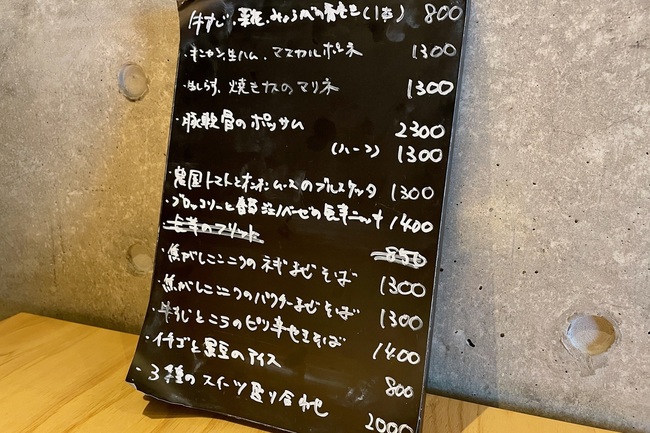 牛すじ、みょうがの春巻き(1本) 800
・キニヤン生ハム、マスカルポーネ 1300
・生しらす、焼きナスのマリネ 1300
・豚軟骨のポッサム 2300
(ハーフ) 1300
トマトとムースのブルスケッタ 1300
・ブロッコリーと 1400
のフリット 850
・焦がしニンニクのネギまぜそば 1300
・焦がしニンニクのバターまぜそば 1300
・牛すじとニラのピリ辛まぜそば 1400
・イチゴと黒豆のアイス 800
・3種のスイーツ盛り合わせ 2000